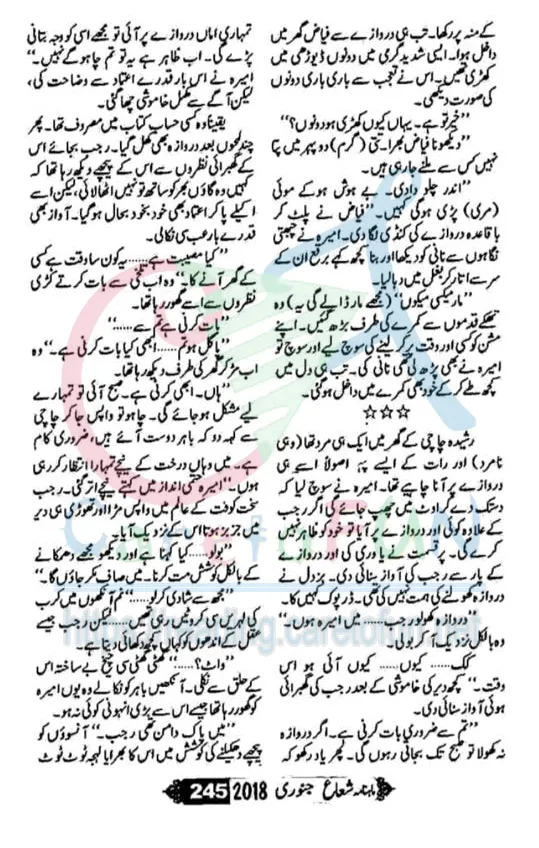 کے منہ پر رکھا۔ تب ہی دروازے سے فیاض گھر میں
داخل ہوا۔ ایسی شدید گرمی میں دونوں ڈیوڑھی میں
کھڑی تھیں۔ اس نے تعجب سے باری باری دونوں
کی صورت دیکھی۔
”خیر تو ہے۔ یہاں کیوں کھڑی ہو دونوں؟“
”دیکھو نا فیاض بھرا۔ تتی (گرم) دوپہر میں پتا
نہیں کس سے ملنے جا رہی ہیں۔
”اندر چلو دادی۔ بے ہوش ہو کے موئی
(مری) پڑی ہو گی کہیں۔“ فیاض نے پلٹ کر
باقاعدہ دروازے کی کنڈی لگا دی۔ امیرہ نے چبھتی
نگاہوں سے نانی کو دیکھا اور بنا کچھ کہے برقع ان کے
سر سے اتار کر بغل میں دبا لیا۔
”مار یسی میکوں“ (مجھے مار ڈالے گی یہ) وہ
تھکے قدموں سے کمرے کی طرف بڑھ گئیں۔ اپنے
مشن کو کسی اور وقت پر کر لینے کی سوچ لیے اور سوچ تو
امیرہ نے بھی پڑھ لی تھی نانی کی۔ تب ہی دل میں
کچھ طے کر کے خود بھی کمرے میں داخل ہو گئی۔
☆☆☆
رشیدہ چاچی کے گھر میں ایک ہی مرد تھا (وہی
نامرد) اور رات کے ایسے پہر اصولاً اسے ہی
دروازے پر آنا چاہیے تھا۔ امیرہ نے سوچ لیا کہ
دستک دے کر اوٹ میں چھپ جائے گی اگر رجب
کے علاوہ کوئی اور دروازے پر آیا تو خود کو ظاہر نہیں
کرے گی۔ پر قسمت نے یاوری کی اور دروازے
کے پار سے رجب کی آواز سنائی دی۔ بزدل نے
دروازہ کھولنے کی ہمت نہیں کی تھی۔ ڈرپوک کہیں کا۔
”دروازہ کھولو رجب ...... میں امیرہ ہوں۔“
وہ بالکل نزدیک آ کر بولی۔
”کک ...... کیوں ...... کیوں آئی ہو اس
وقت۔“ کچھ دیر کی خاموشی کے بعد رجب کی گھبرائی
ہوئی آواز سنائی دی۔
”تم سے ضروری بات کرنی ہے۔ اگر دروازہ
نہ کھولا تو صبح تک بجاتی رہوں گی۔ پھر یاد رکھو کہ
تمہاری اماں دروازے پر آئی تو مجھے اسی کو وجہ بتانی
پڑے گی۔ اب ظاہر ہے یہ تو تم چاہو گے نہیں۔“
امیرہ نے اس بار قدرے اعتماد سے وضاحت کی،
لیکن آگے سے مکمل خاموشی چھا گئی۔
یقیناً وہ کسی حساب کتاب میں مصروف تھا۔ پھر
چند لمحوں بعد دروازہ بھی کھل گیا۔ رجب بجائے اس
کے گھبرائی نظروں سے اس کے پیچھے دیکھ رہا تھا کہ
کہیں وہ گاؤں بھر کو ساتھ تو نہیں اٹھا لائی، لیکن اسے
اکیلے پا کر اعتماد بھی خود بخود بحال ہو گیا۔ آواز بھی
قدرے بارعب سی نکالی۔
”کیا مصیبت ہے ...... یہ کون سا وقت ہے کسی
کے گھر آنے کا۔“ وہ اب تلخی سے بات کرتے کڑی
نظروں سے اسے گھور رہا تھا۔
”بات کرنی ہے تم سے ......“
”پاگل ہو تم ...... ابھی کیا بات کرنی ہے۔“ وہ
اب مڑ کر گھر کی طرف دیکھ رہا تھا۔
”ہاں۔ ابھی کرنی ہے۔ صبح آئی تو تمہارے
لیے مشکل ہو جائے گی۔ چاہو تو واپس جا کر چاچی
سے کہہ دو کہ باہر دوست آئے ہیں، ضروری کام
ہے۔ میں وہاں درخت کے نیچے تمہارا انتظار کر رہی
ہوں۔“ امیرہ حتمی انداز میں کہتے نیچے اتر گئی۔ رجب
سخت کوفت کے عالم میں واپس مڑا اور تھوڑی ہی دیر
میں جزبز ہوتا اس کے نزدیک آیا۔
”بولو ...... کیا کہنا ہے اور دیکھو مجھے دھمکانے
کے بالکل کوشش مت کرنا۔ میں صاف مکر جاؤں گا۔“
”مجھ سے شادی کر لو۔“ نم آنکھوں میں کرب
کی لہریں سی کروٹیں رہی تھیں ...... لیکن رجب جیسے
عقل کے اندھوں کو کہاں کچھ دکھائی دیتا ہے۔
”واٹ؟ ......“ گھٹی گھٹی سی چیخ بے ساختہ اس
کے حلق سے نکلی۔ آنکھیں باہر کو نکالے وہ یوں امیرہ
کو گھور رہا تھا جیسے اس سے بڑی انہونی کوئی نہ ہو۔
”میں پاک دامن تھی رجب۔“ آنسوؤں کو
پیچھے دھکیلنے کی کوشش میں اس کا بھرایا لہجہ ٹوٹ ٹوٹ
ماہنامہ شعاع جنوری 2018 245